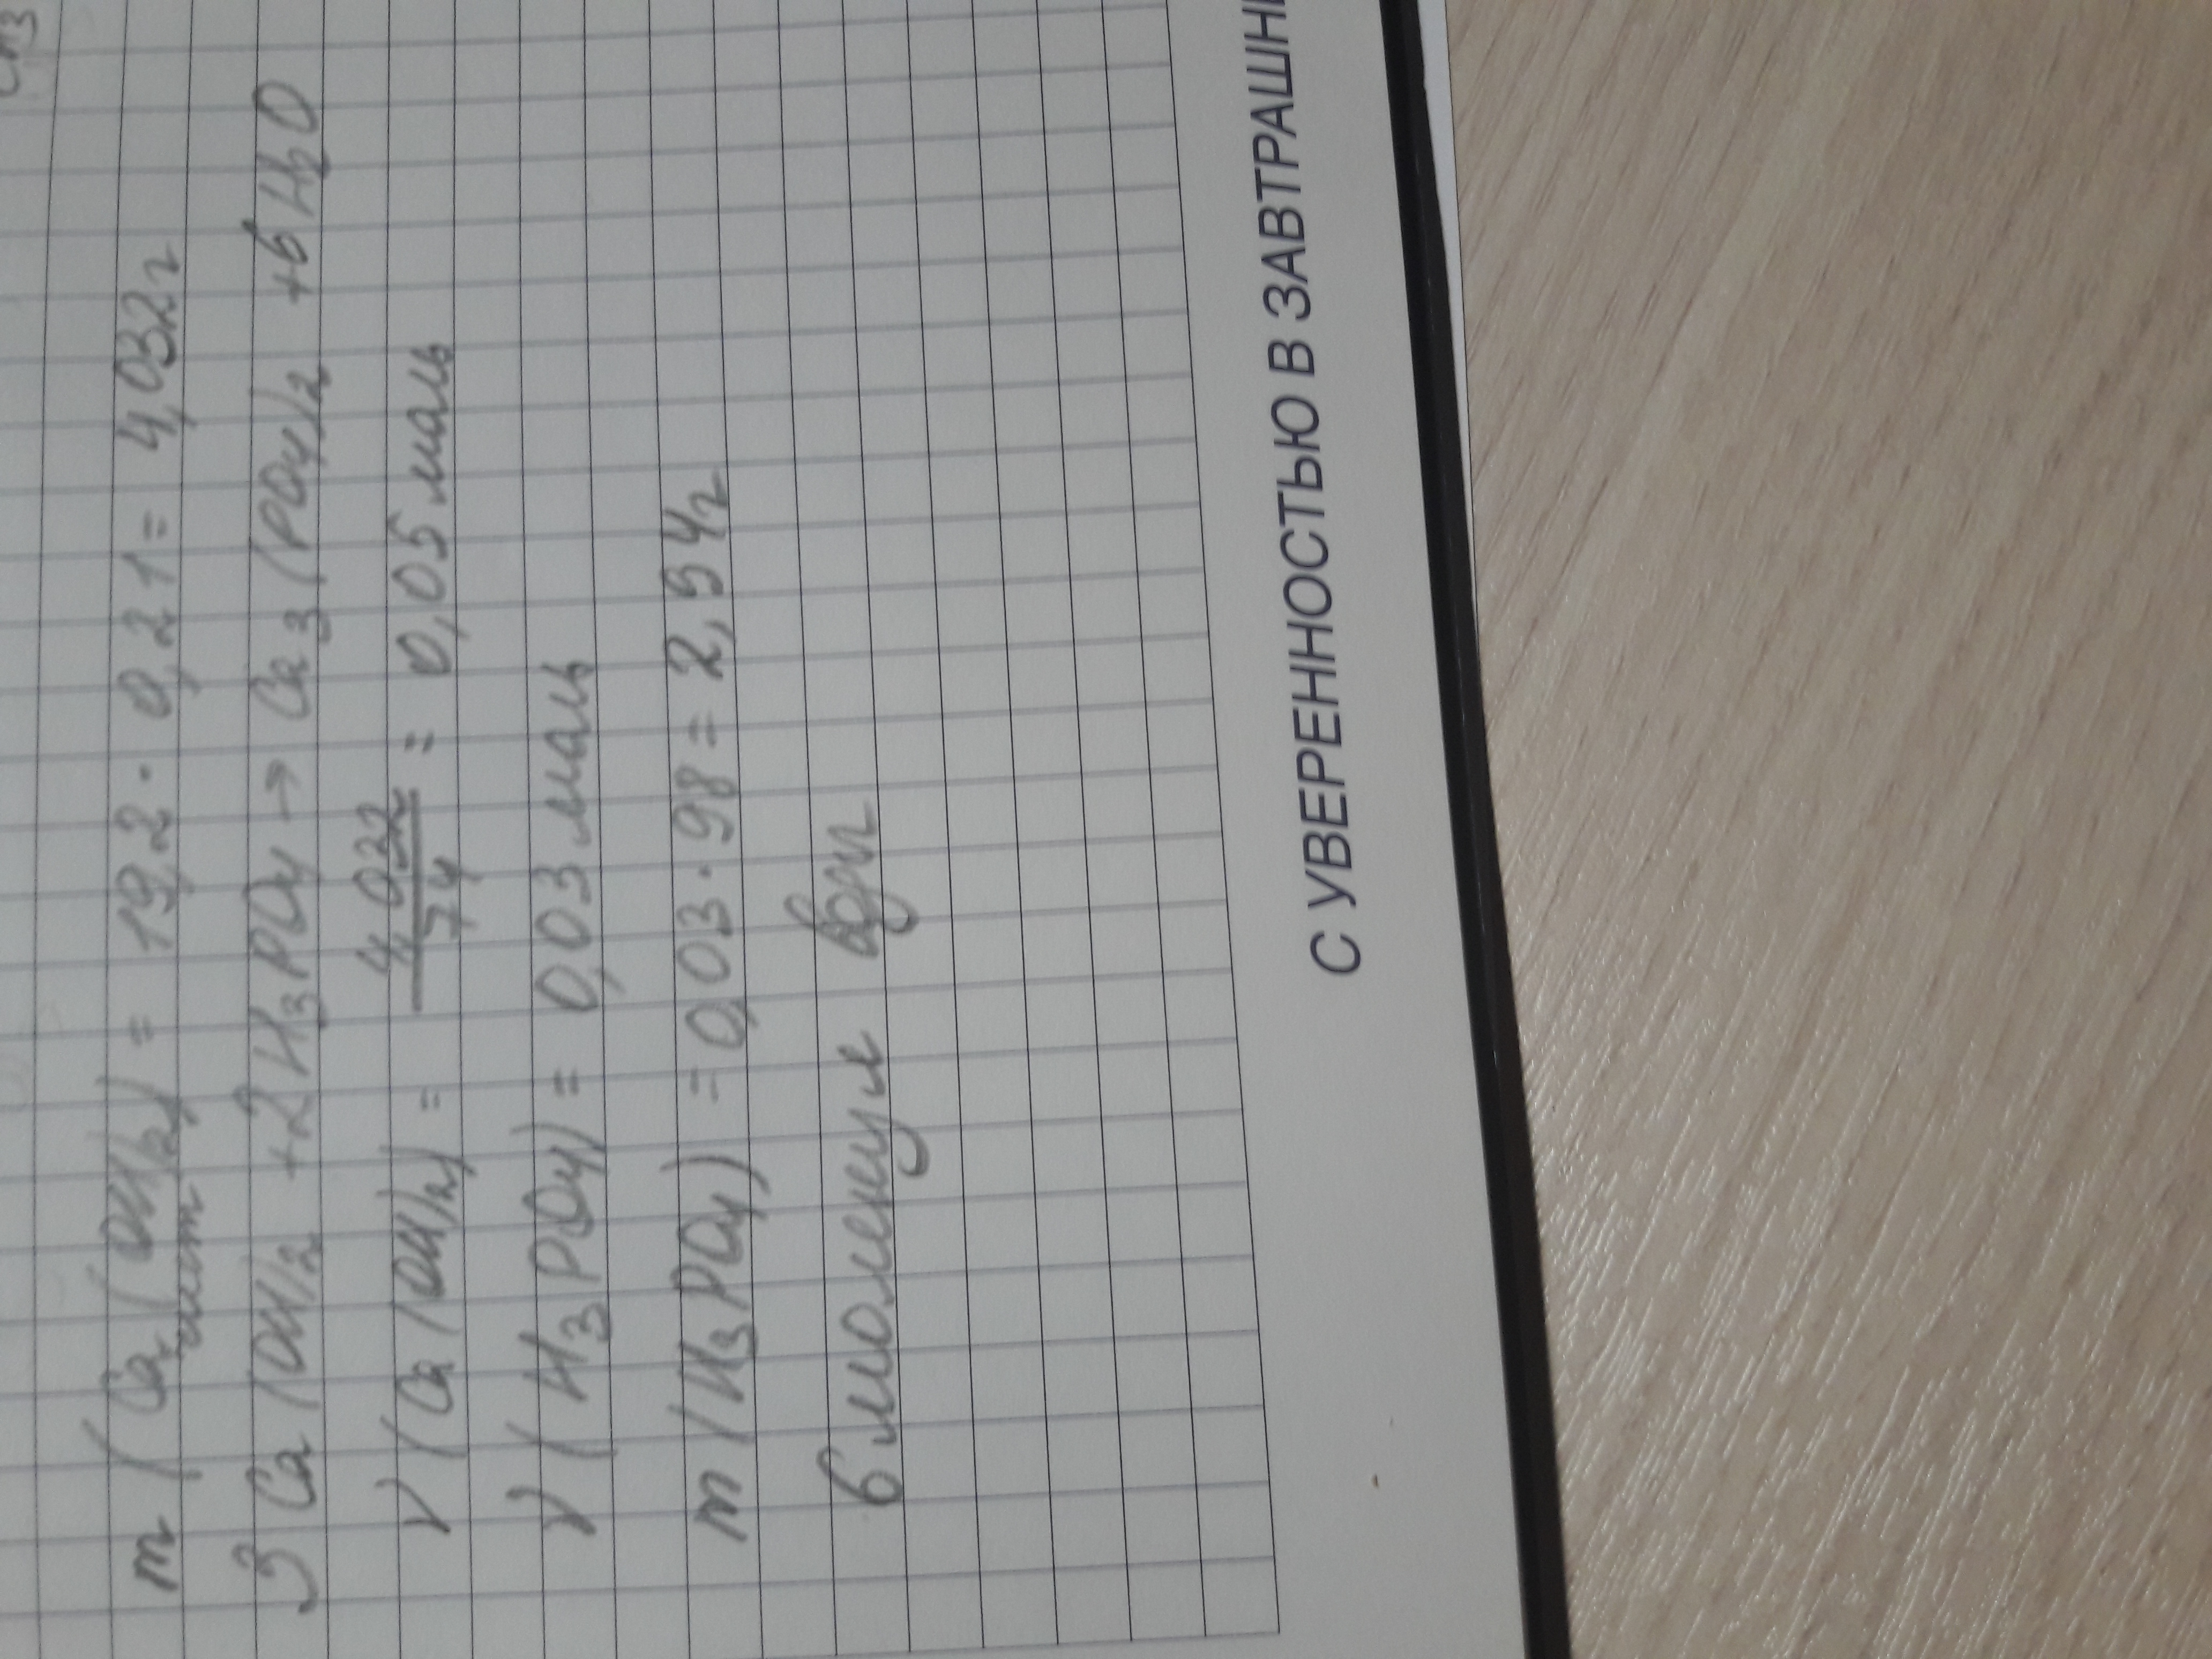 m (Ca(OH)2) = 19,2 · 0,21 = 4,032 г
чист
3 Ca(OH)2 + 2 H3PO4 → Ca3(PO4)2 + 6 H2O
ν (Ca(OH)2) = 4,032 / 74 = 0,05 моль
ν (H3PO4) = 0,03 моль
m (H3PO4) = 0,03 · 98 = 2,94 г
6 молекул воды
С УВЕРЕННОСТЬЮ В ЗАВТРАШН